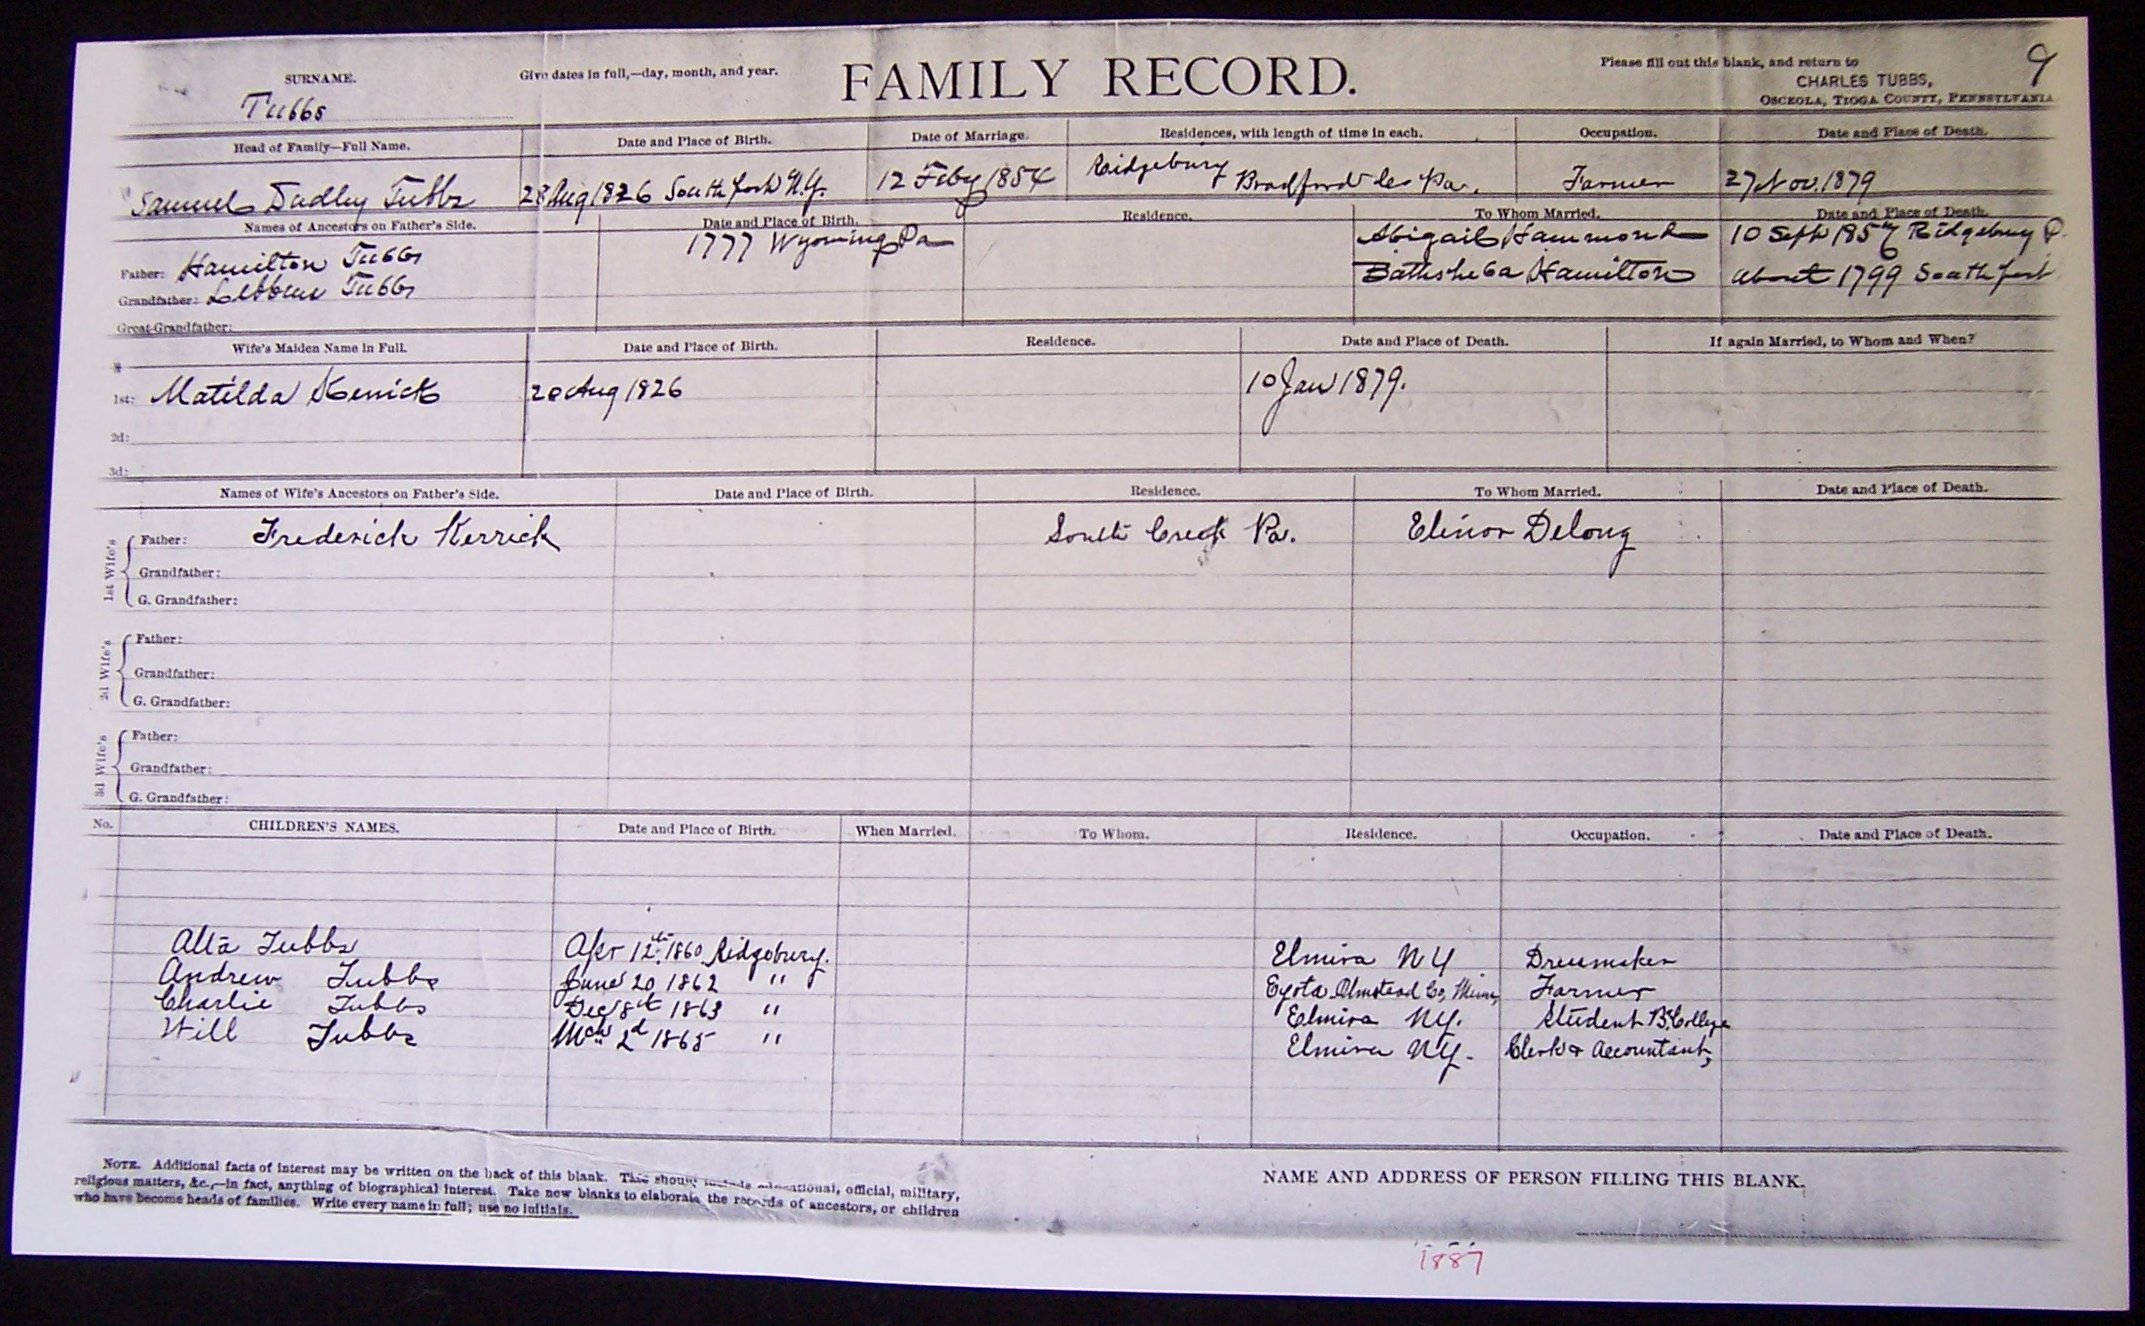 SURNAME. Give dates in full,—day, month, and year. FAMILY RECORD. Please fill out this blank, and return to 9
Tubbs CHARLES TUBBS,
OSCEOLA, TIOGA COUNTY, PENNSYLVANIA
Head of Family—Full Name. Date and Place of Birth. Date of Marriage. Residences, with length of time in each. Occupation. Date and Place of Death.
Samuel Dudley Tubbs 28 Aug 1826 Southport N.Y. 12 Feby 1854 Ridgebury Bradford Co Pa. Farmer 27 Nov. 1879
Names of Ancestors on Father's Side. Date and Place of Birth. Residence. To Whom Married. Date and Place of Death.
Father: Hamilton Tubbs 1777 Wyoming Pa Abigail Hammond 10 Sept 1857 Ridgebury P.
Grandfather: Lebbeus Tubbs Bathsheba Hamilton about 1799 Southport
Great-Grandfather:
Wife's Maiden Name in Full. Date and Place of Birth. Residence. Date and Place of Death. If again Married, to Whom and When?
1st: Matilda Kerrick 20 Aug 1826 10 Jan 1879.
2d:
3d:
Names of Wife's Ancestors on Father's Side. Date and Place of Birth. Residence. To Whom Married. Date and Place of Death.
1st Wife's Father: Frederick Kerrick South Creek Pa. Elinor Delong
Grandfather:
G. Grandfather:
2d Wife's Father:
Grandfather:
G. Grandfather:
3d Wife's Father:
Grandfather:
G. Grandfather:
No. CHILDREN'S NAMES. Date and Place of Birth. When Married. To Whom. Residence. Occupation. Date and Place of Death.
Alta Tubbs Apr 12th 1860 Ridgebury. Elmira N Y Dressmaker
Andrew Tubbs June 20 1862 " Eyota Olmstead Co, Minn, Farmer
Charlie Tubbs Dec 8th 1863 " Elmira N.Y. Student B. College
Will Tubbs Mch 2d 1865 " Elmira N.Y. Clerk & Accountant,
NOTE. Additional facts of interest may be written on the back of this blank. This should include educational, official, military,
religious matters, &c.,—in fact, anything of biographical interest. Take new blanks to elaborate the records of ancestors, or children
who have become heads of families. Write every name in full; use no initials.
NAME AND ADDRESS OF PERSON FILLING THIS BLANK.
1887